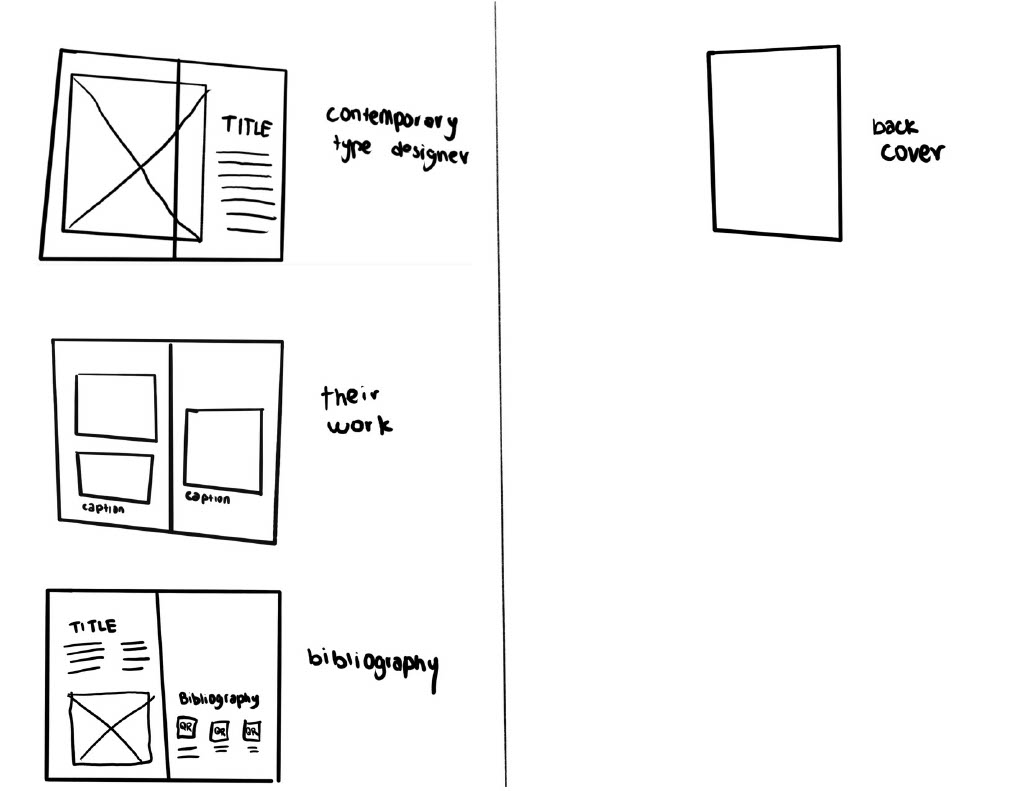 TITLE
contemporary
type designer
caption
caption
their
work
TITLE
Bibliography
QR QR QR
bibliography
back
cover